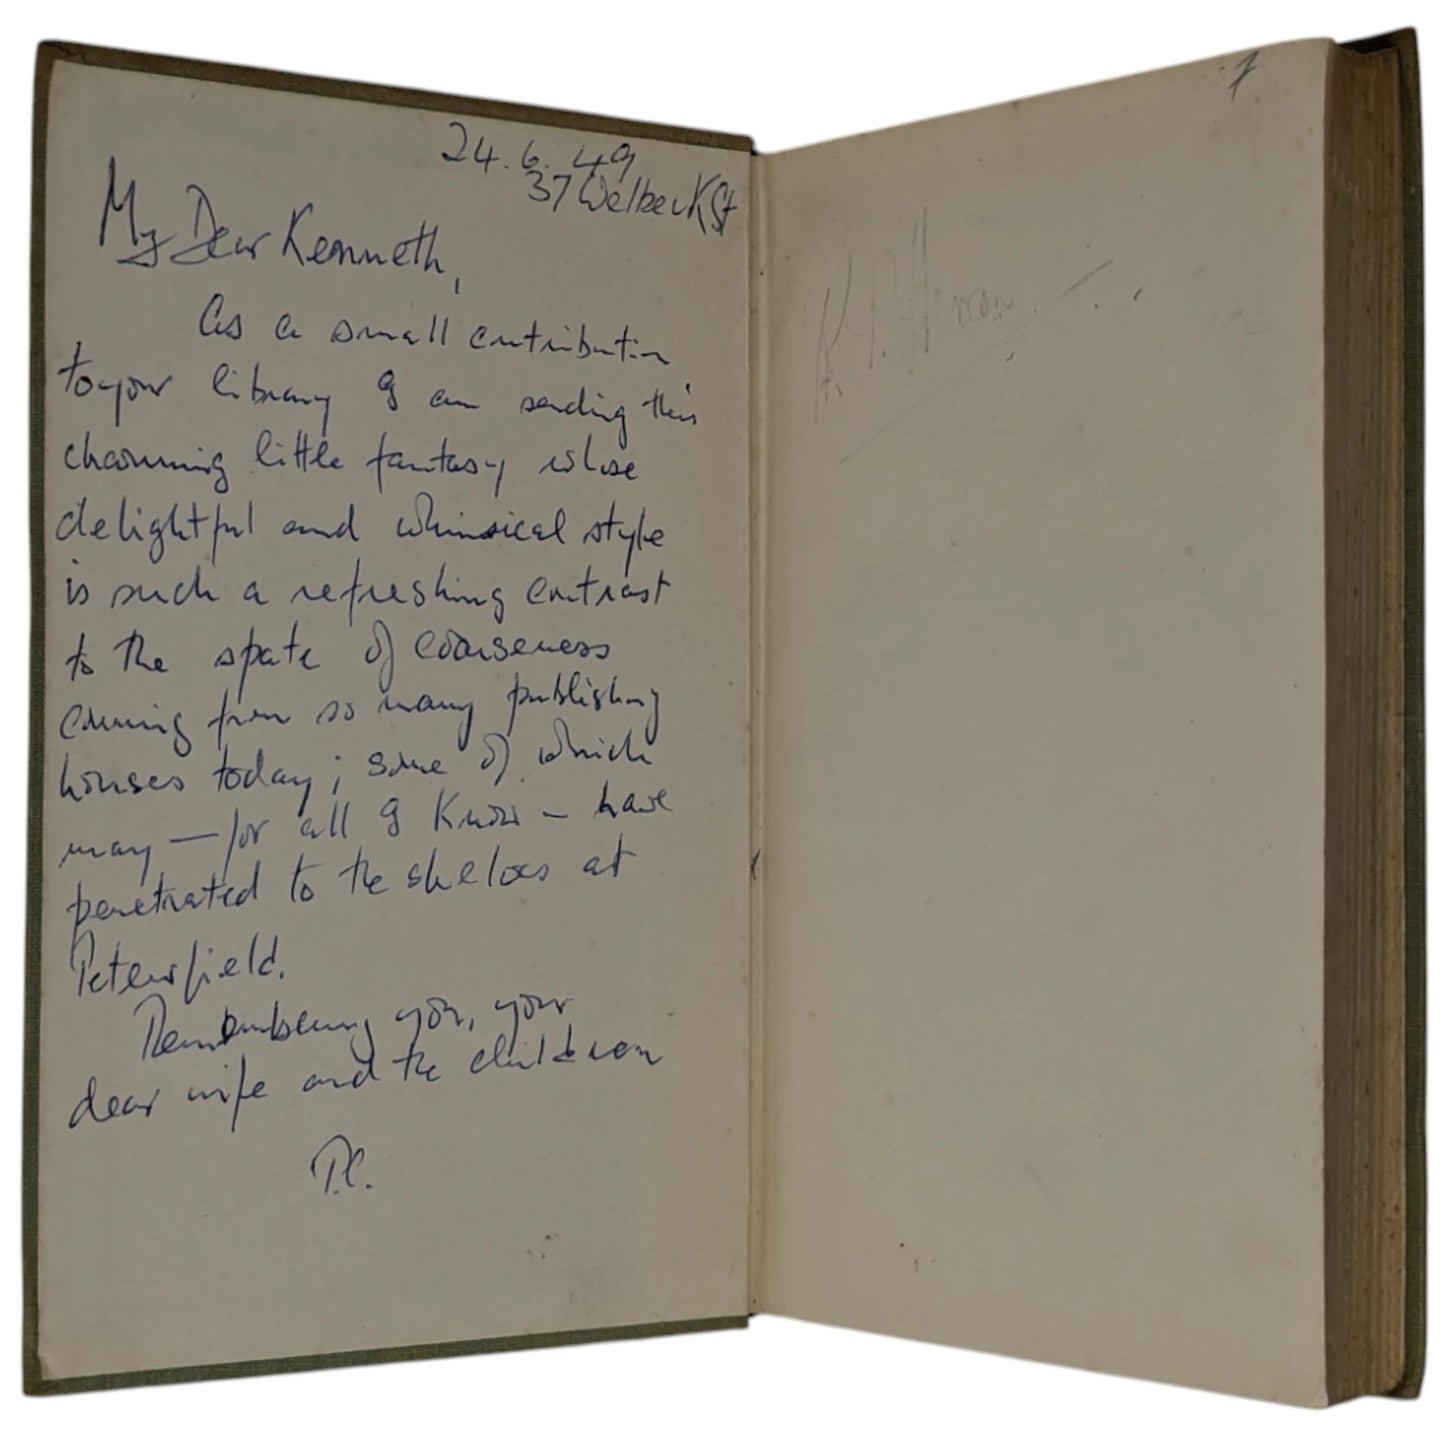 24.6.49
37 Welbeck St
My Dear Kenneth,
As a small contribution
to your library I am sending this
charming little fantasy whose
delightful and whimsical style
is such a refreshing contrast
to the spate of coarseness
coming from so many publishing
houses today; some of which
may — for all I know — have
penetrated to the shelves at
Petersfield.
Remembering you, your
dear wife and the children
P.C.